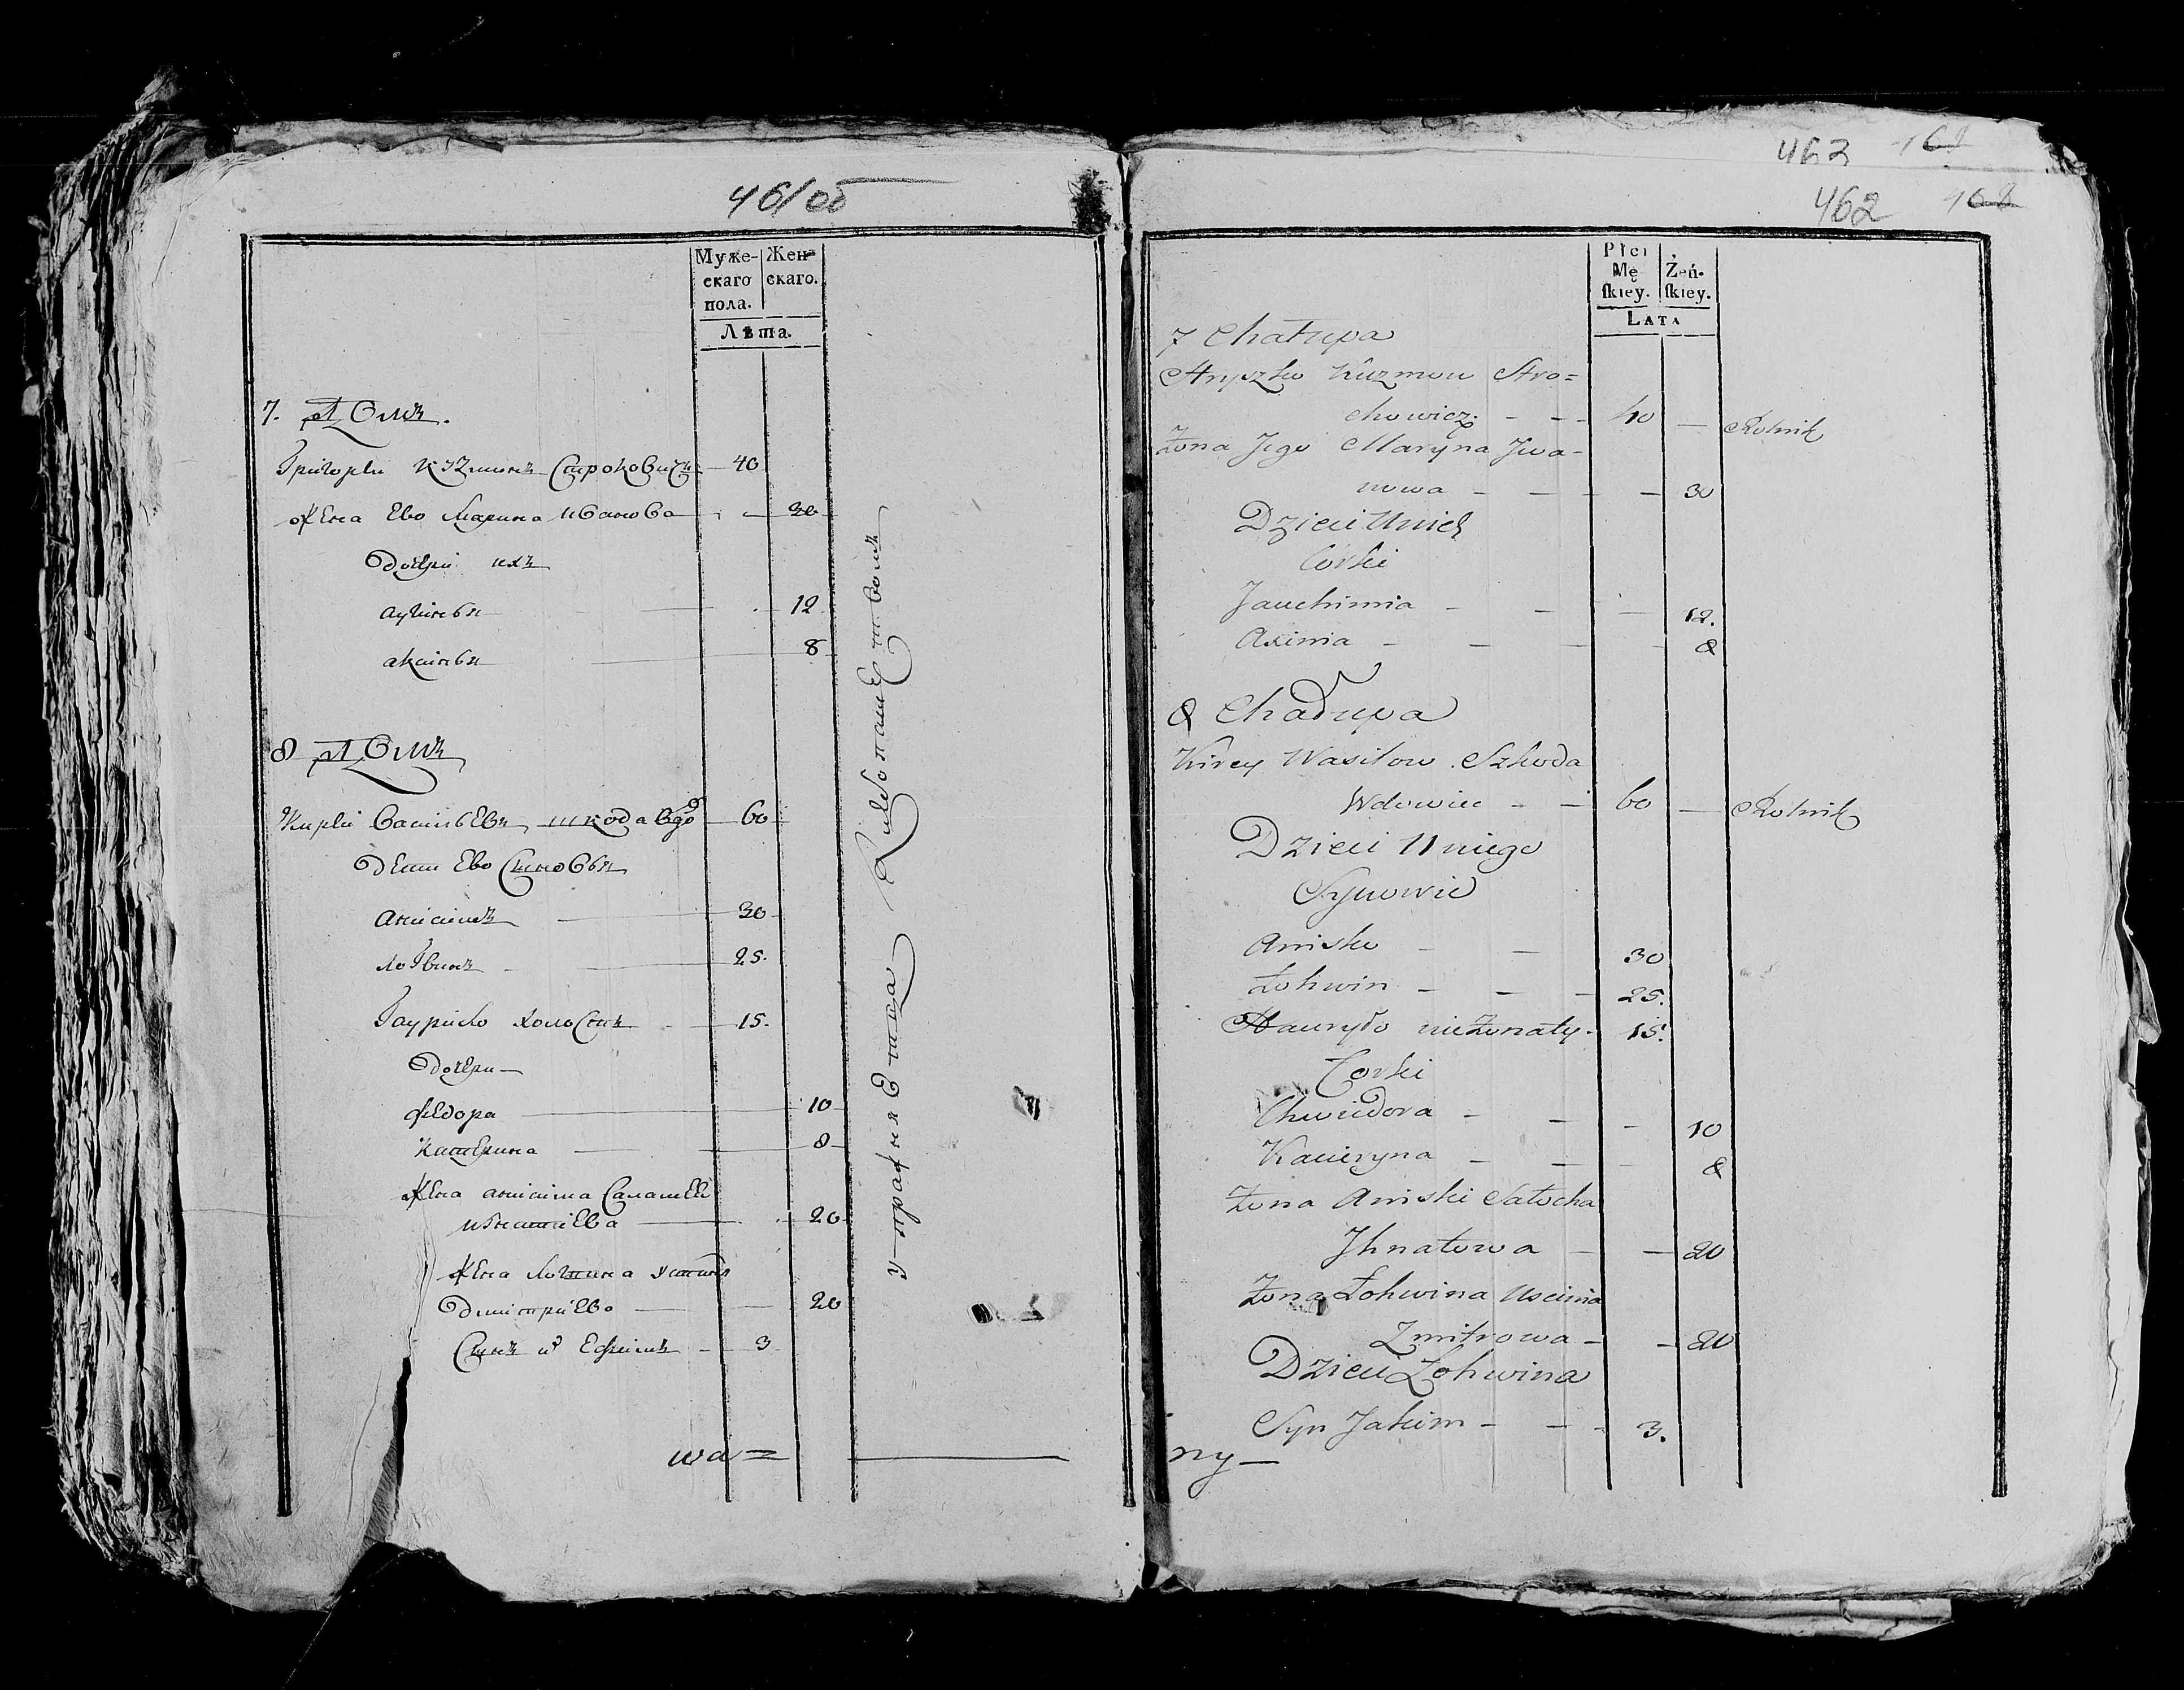 461об
Муже-
скаго
пола.
Жен-
скаго.
Лѣта.
7. Домъ.
Григореи Кузминъ Строковичъ 40
Жена Ево Марина Иванова 30
Дочери ихъ
12
аксинья 8
8 Домъ
Киреи Васильевъ шкода вдо 60
Дети Ево Сыновья
Анисимъ 30
Логвинъ 25.
Гаурило холостъ 15.
Дочери
Федора 10
Катерина 8
Жена анисима Саламея
Игнатиева 20
Жена Логвина Устинья
Дмитриева 20
Сынъ Ефимъ 3
упражняЕтца Хлебопашеством
wa=
463
462 168
Płci
Mę
ſkıey.
Żeń-
ſkıey.
LATA
7 Chałupa
Hryszko Kuzmow Stro=
chowicz 40 Rolnik
Żona Jego Maryna Jwa-
nowa 30
Dzieci Unich
Córki
Jauchimia 12.
Axinia 8
8 Chałupa
Kirey Wasilow Szkoda
Wdowiec 60 Rolnik
Dzieci Uniego
Synowie
Anisko 30
Łohwin 25.
Hauryło nieżonaty 15.
Corki
Chwiedora 10
Kacieryna 8
Żona Aniski Sałocha
Jhnatowa 20
Żona Łohwina Uscinia
Zmitrowa 20
Dzieci Łohwina
Syn Jakim 3.
ny